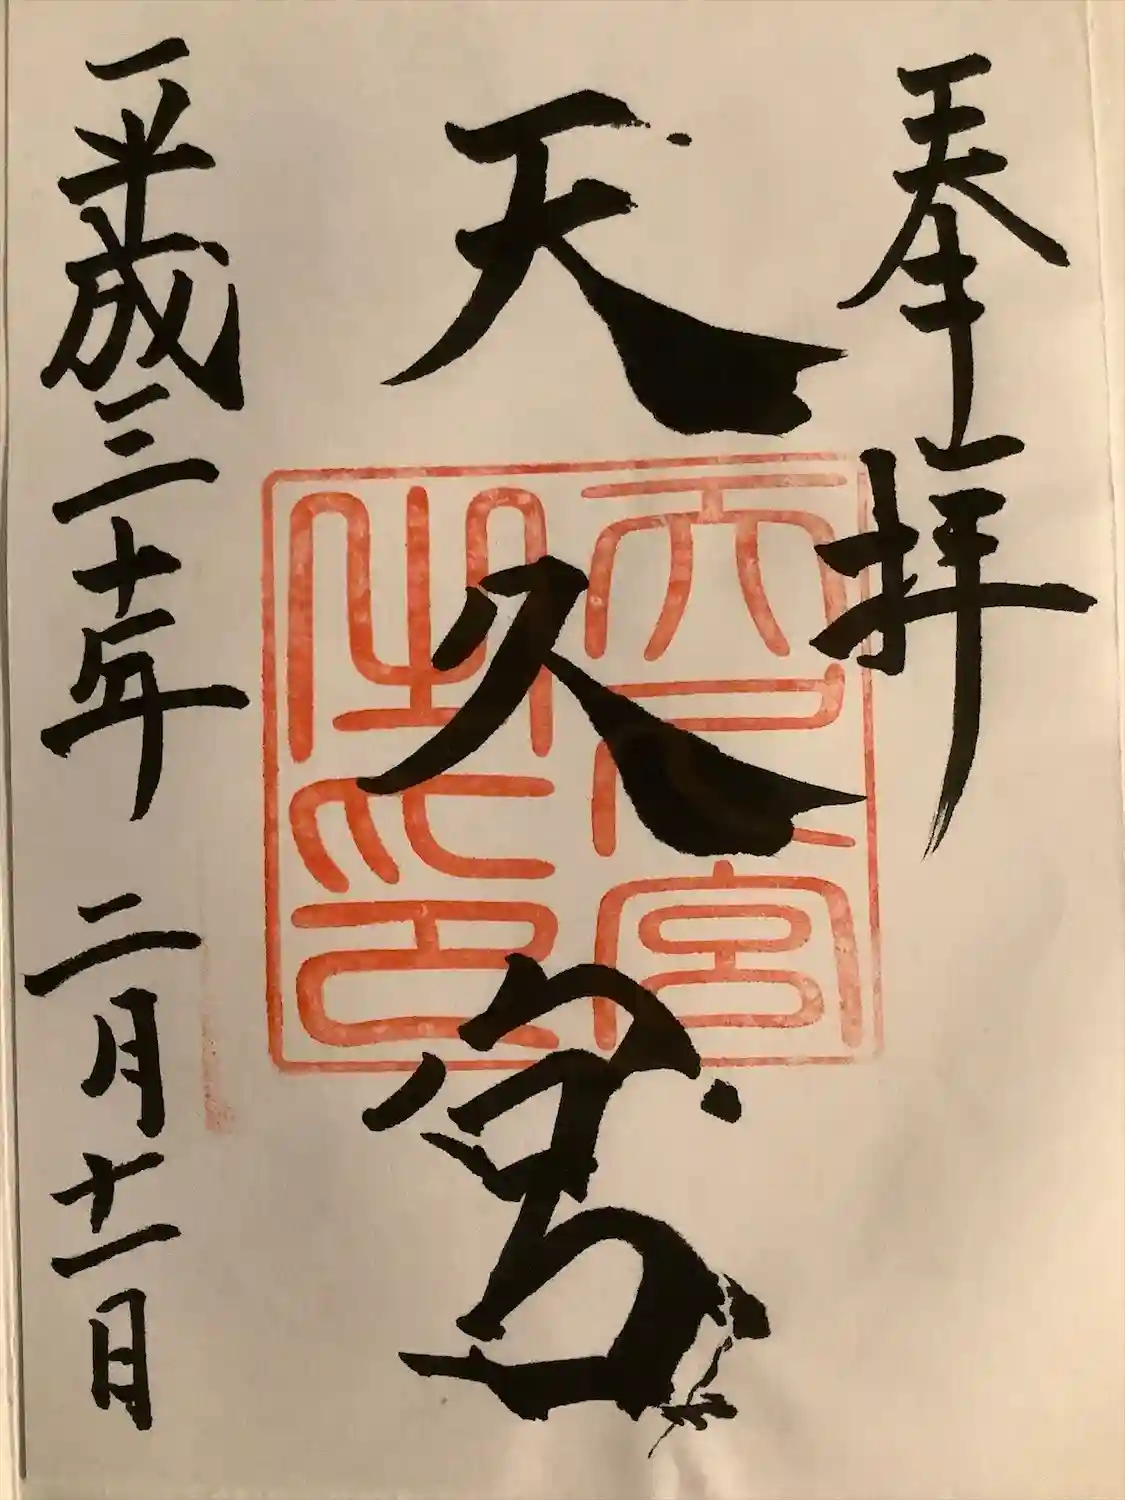 奉拝
天久宮
天久宮
之印
平成三十年 二月十一日